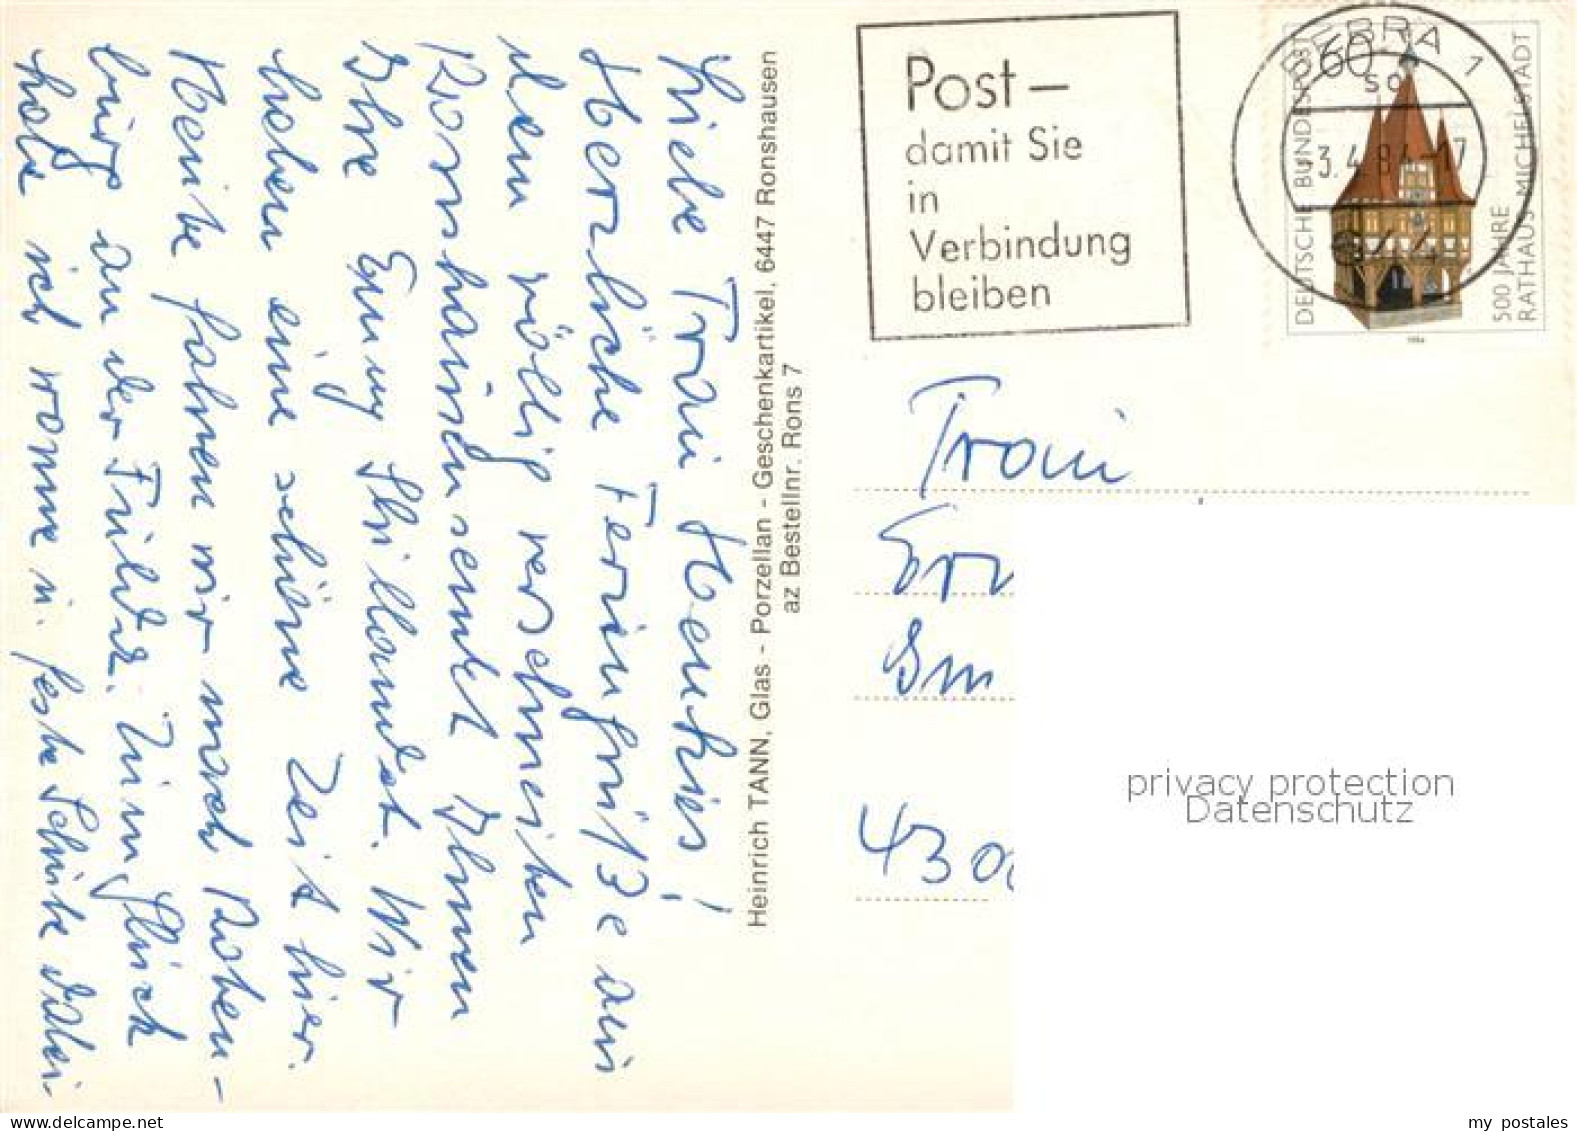 Liebe Frau Henkies!
Herzliche Feriengrüße aus
dem völlig verschneiten
Ronshausen sendet Ihnen
Ihre
Wir
haben eine schöne Zeit hier.
Heute fahren wir nach Roten-
burg an der Fulda. Zum Glück
habe ich warme u. feste Schuhe dabei.
Heinrich TANN, Glas - Porzellan - Geschenkartikel, 6447 Ronshausen
az Bestellnr. Rons 7
Post –
damit Sie
in
Verbindung
bleiben
BEBRA 1
-3.4.84-17
6440
DEUTSCHE BUNDESPOST
60
500 JAHRE
RATHAUS MICHELSTADT
1984
Frau
43 00
privacy protection
Datenschutz
my postales